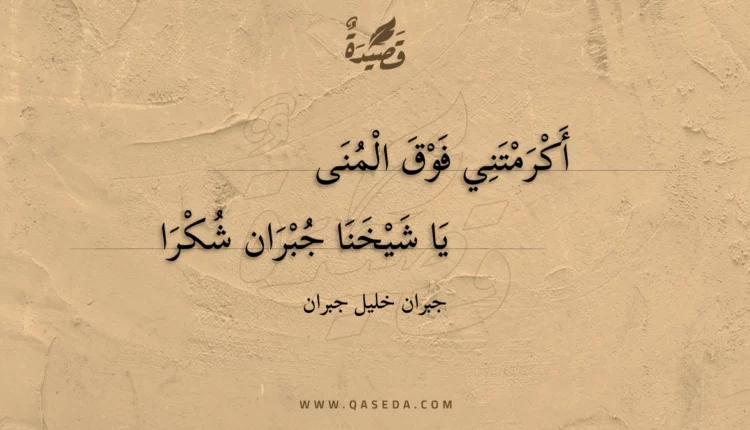 قَصِيدَةٌ
أَكْرَمْتَنِي فَوْقَ الْمُنَى
يَا شَيْخَنَا جُبْرَان شُكْرَا
جبران خليل جبران
WWW.QASEDA.COM